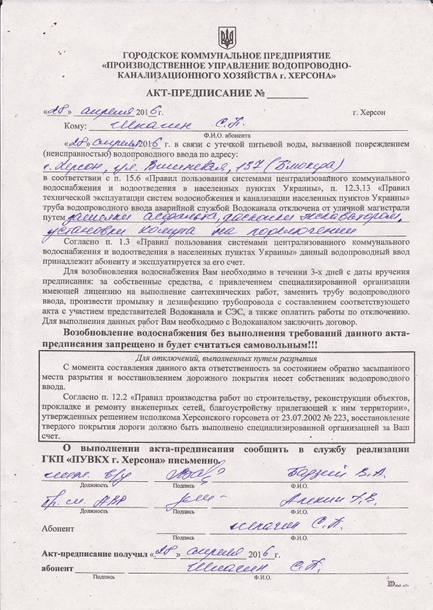 ГОРОДСКОЕ КОММУНАЛЬНОЕ ПРЕДПРИЯТИЕ
«ПРОИЗВОДСТВЕННОЕ УПРАВЛЕНИЕ ВОДОПРОВОДНО-
КАНАЛИЗАЦИОННОГО ХОЗЯЙСТВА г. ХЕРСОНА»
АКТ-ПРЕДПИСАНИЕ №
«28» апреля 2016г. г. Херсон
Кому: Шпагин С.П.
Ф.И.О. абонента
«28» апреля 2016 г. в связи с утечкой питьевой воды, вызванной повреждением
(неисправностью) водопроводного ввода по адресу:
г. Херсон, ул. 137
в соответствии с п. 15.6 «Правил пользования системами централизованного коммунального
водоснабжения и водоотведения в населенных пунктах Украины», п. 12.3.13 «Правил
технической эксплуатации систем водоснабжения и канализации населенных пунктах Украины»
труба водопроводного ввода аварийной службой Водоканала отключена от уличной магистрали
путем асфальта, экскаватором,
установки хомута на
Согласно п. 1.3 «Правил пользования системами централизованного коммунального
водоснабжения и водоотведения в населенных пунктах Украины» данный водопроводный ввод
принадлежит абоненту и эксплуатируется за его счет.
Для возобновления водоснабжения Вам необходимо в течении 3-х дней с даты вручения
предписания: за собственные средства, с привлечением специализированной организации
имеющей лицензию на выполнение сантехнических работ, заменить трубу водопроводного
ввода, произвести промывку и дезинфекцию трубопровода с составлением соответствующего
акта с участием представителей Водоканала и СЭС, а также оплатить работы по отключению.
Для выполнения данных работ Вам необходимо с Водоканалом заключить договор.
Возобновление водоснабжения без выполнения требований данного акта-
предписания запрещено и будет считаться самовольным!!!
Для отключений, выполненных путем разрытия
С момента составления данного акта ответственность за состоянием обратно засыпанного
места разрытия и восстановлением дорожного покрытия несет собственник водопроводного
ввода.
Согласно п. 12.2 «Правил производства работ по строительству, реконструкции объектов,
прокладке и ремонту инженерных сетей, благоустройству прилегающей к ним территории»,
утвержденных решением исполкома Херсонского горсовета от 23.07.2002 № 223, восстановление
твердого покрытия дороги должно быть выполнено специализированной организацией за Ваш
счет.
О выполнении акта-предписания сообщить в службу реализации
ГКП «ПУВКХ г. Херсона» письменно.
Должность Подпись Ф.И.О.
Должность Подпись Ф.И.О.
Абонент Шпагин С.П.
Подпись Ф.И.О.
Акт-предписание получил «28» апреля 2016г.
абонент Шпагин С.П.
Подпись Ф.И.О.